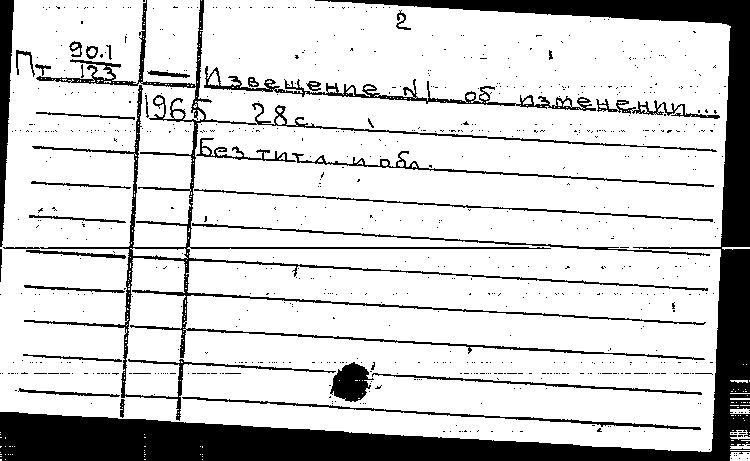 2
Пт 90.1/123 — Извещение N1 об изменении...
1965 28 с.
Без тит. л. и обл.